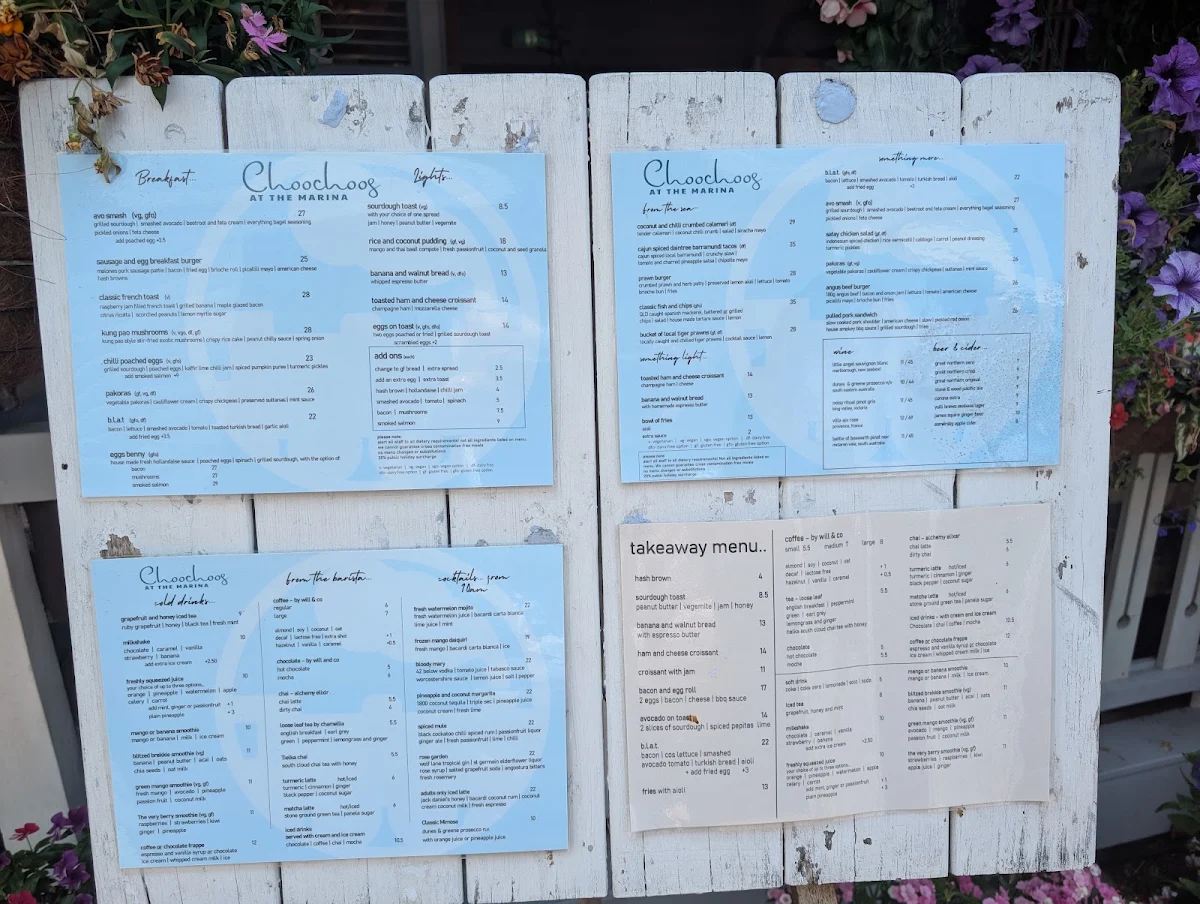 Breakfast...
Choochoos
AT THE MARINA
Lights...
avo smash (vg, gfo) 27
grilled sourdough | smashed avocado | beetroot and feta cream | everything bagel seasoning
pickled onions | feta cheese
add poached egg +3.5
sausage and egg breakfast burger 25
malones pork sausage pattie | bacon | fried egg | brioche roll | picalilli mayo | american cheese
hash browns
classic french toast (v) 28
raspberry jam filled french toast | grilled banana | maple glazed bacon
citrus ricotta | scorched peanuts | lemon myrtle sugar
kung pao mushrooms (v, vgo, df, gf) 28
kung pao style stir-fried exotic mushrooms | crispy rice cake | peanut chilly sauce | spring onion
chilli poached eggs (v, gfo) 23
grilled sourdough | poached eggs | kaffir lime chilli jam | spiced pumpkin puree | turmeric pickles
add smoked salmon +9
pakoras (gf, vg, df) 26
vegetable pakoras | cauliflower cream | crispy chickpeas | preserved sultanas | mint sauce
b.l.a.t (gfo, df) 22
bacon | lettuce | smashed avocado | tomato | toasted turkish bread | garlic aioli
add fried egg +3.5
eggs benny (gfo)
house made fresh hollandaise sauce | poached eggs | spinach | grilled sourdough, with the option of
bacon 27
mushrooms 27
smoked salmon 29
sourdough toast (vg) 8.5
with your choice of one spread
jam | honey | peanut butter | vegemite
rice and coconut pudding (gf, vg) 18
mango and thai basil compote | fresh passionfruit | coconut and seed granola
banana and walnut bread (v, dfo) 13
whipped espresso butter
toasted ham and cheese croissant 14
champagne ham | mozzarella cheese
eggs on toast (v, gfo, dfo) 14
two eggs poached or fried | grilled sourdough toast
scrambled eggs +2
add ons (each)
change to gf bread | extra spread 2.5
add an extra egg | extra toast 3.5
hash brown | hollandaise | chilli jam 4
smashed avocado | tomato | spinach 5
bacon | mushrooms 7.5
smoked salmon 9
please note:
alert all staff to all dietary requirements! not all ingredients listed on menu
we cannot guarantee cross contamination free meals
no menu changes or substitutions
15% public holiday surcharge
v: vegetarian | vg: vegan | vgo: vegan option | df: dairy free
dfo: dairy free option | gf: gluten free | gfo: gluten free option
Choochoos
AT THE MARINA
from the sea
coconut and chilli crumbed calamari (df) 29
tender calamari | coconut chilli crumb | salad | siracha mayo
cajun spiced daintree barramundi tacos (df) 35
cajun spiced local barramundi | crunchy slaw
tomato and charred pineapple salsa | chipotle mayo
prawn burger 28
crumbed prawn and herb patty | preserved lemon aioli | lettuce | tomato
brioche bun | fries
classic fish and chips (gfo) 35
QLD caught spanish mackerel, battered or grilled
chips | salad | house made tartare sauce | lemon
bucket of local tiger prawns (gf, df) 28
locally caught and chilled tiger prawns | cocktail sauce | lemon
something light...
toasted ham and cheese croissant 14
champagne ham | cheese
banana and walnut bread 13
with homemade espresso butter
bowl of fries 13
aioli
extra sauce 2
please note:
alert all staff to all dietary requirements! not all ingredients listed on
menu. We cannot guarantee cross contamination free meals
no menu changes or substitutions
15% public holiday surcharge
something more...
b.l.a.t (gfo, df) 22
bacon | lettuce | smashed avocado | tomato | turkish bread | aioli
add fried egg +3
avo smash (v, gfo) 27
grilled sourdough | smashed avocado | beetroot and feta cream | everything bagel seasoning
pickled onions | feta cheese
satay chicken salad (gf, df) 31
indonesian spiced chicken | rice vermicelli | cabbage | carrot | peanut dressing
turmeric pickles
pakoras (gf, vg, df) 26
vegetable pakoras | cauliflower cream | crispy chickpeas | sultanas | mint sauce
angus beef burger 28
180g angus beef | bacon and onion jam | lettuce | tomato | american cheese
picalilli mayo | brioche bun | fries
pulled pork sandwich 26
slow cooked pork shoulder | american cheese | slaw | pickled red onion
house smokey bbq sauce | grilled sourdough | fries
wine
little angus sauvignon blanc 11 / 45
marlborough, new zealand
dunes & greene prosecco n/v 10 / 44
south eastern australia
notsy ritual pinot gris 11 / 45
king valley, victoria
villa aix rose 12 / 49
provence, france
battle of bosworth pinot noir 11 / 45
mclaren vale, south australia
beer & cider...
great northern zero
great northern crisp
great northern original
stone & wood pacific ale
corona extra
yulli brews seabass lager
james squire ginger beer
somersby apple cider
Choochoos
AT THE MARINA
cold drinks...
grapefruit and honey iced tea 9
ruby grapefruit | honey | black tea | fresh mint
milkshake 10
chocolate | caramel | vanilla
strawberry | banana
add extra ice cream +2.50
freshly squeezed juice 10
your choice of up to three options..
orange | pineapple | watermelon | apple
celery | carrot
add mint, ginger or passionfruit +1
plain pineapple +3
mango or banana smoothie 10
mango or banana | milk | ice cream
blitzed brekkie smoothie (vg) 11
banana | peanut butter | acai | oats
chia seeds | oat milk
green mango smoothie (vg) 11
fresh mango | avocado | pineapple
passion fruit | coconut milk
The very berry smoothie (vg, gf) 11
raspberries | strawberries | kiwi
ginger | pineapple
coffee or chocolate frappe 12
espresso and vanilla syrup or chocolate
ice cream | whipped cream milk | ice
from the barista...
coffee – by will & co
regular 6
large 7
almond | soy | coconut | oat
decaf | lactose free | extra shot +1
hazelnut | vanilla | caramel +0.5
chocolate – by will and co
hot chocolate 5
mocha 6
chai – alchemy elixir
chai latte 5.5
dirty chai 6
loose leaf tea by chamellia 5.5
english breakfast | earl grey
green | peppermint | lemongrass and ginger
Tielka chai 5.5
south cloud chai tea with honey
turmeric latte hot/iced 6
turmeric | cinnamon | ginger
black pepper | coconut sugar
matcha latte hot/iced 6
stone ground green tea | panela sugar
iced drinks
served with cream and ice cream
chocolate | coffee | chai | mocha 10.5
cocktails.. from
10am
fresh watermelon mojito 22
fresh watermelon juice | bacardi carta blanca
lime juice | mint
frozen mango daiquiri 19
fresh mango | bacardi carta blanca | ice
bloody mary 22
42 below vodka | tomato juice | tabasco sauce
worcestershire sauce | lemon juice | salt | pepper
pineapple and coconut margarita 22
1800 coconut tequila | triple sec | pineapple juice
coconut cream | fresh lime
spiced mule 22
black cockatoo chilli spiced rum | passionfruit liquor
ginger ale | fresh passionfruit | lime | chilli
rose garden 22
void lane tropical gin | st germain elderflower liquor
rose syrup | salted grapefruit soda | angostura bitters
fresh rosemary
adults only iced latte 22
jack daniel's honey | bacardi coconut rum | coconut
cream coconut milk | fresh espresso
Classic Mimosa 10
dunes & greene prosecco n.v.
with orange juice or pineapple juice
takeaway menu..
hash brown 4
sourdough toast 8.5
peanut butter | vegemite | jam | honey
banana and walnut bread 13
with espresso butter
ham and cheese croissant 14
croissant with jam 11
bacon and egg roll 17
2 eggs | bacon | cheese | bbq sauce
avocado on toast 14
2 slices of sourdough | spiced pepitas lime
b.l.a.t. 22
bacon | cos lettuce | smashed
avocado tomato | turkish bread | aioli
+ add fried egg +3
fries with aioli 13
coffee – by will & co
small 5.5 medium 7 large 8
almond | soy | coconut | oat +1
decaf | lactose free +0.5
hazelnut | vanilla | caramel
tea – loose leaf 5.5
english breakfast | peppermint
green | earl grey
lemongrass and ginger
tielka south cloud chai with honey
chocolate 5
hot chocolate 5.5
mocha
soft drink 5
coke | coke zero | lemonade | scot | soda
iced tea 8
grapefruit, honey and mint
milkshake 10
chocolate | caramel | vanilla
strawberry | banana
add extra ice cream +2.50
freshly squeezed juice 10
your choice of up to three options..
orange | pineapple | watermelon | apple
celery | carrot
add mint, ginger or passionfruit +1
plain pineapple +3
chai – alchemy elixir
chai latte 5.5
dirty chai 6
turmeric latte hot/iced 6
turmeric | cinnamon | ginger
black pepper | coconut sugar
matcha latte hot/iced 6
stone ground green tea | panela sugar
iced drinks – with cream and ice cream
Chocolate | chai | coffee | mocha 10.5
coffee or chocolate frappe
espresso and vanilla syrup or chocolate 12
ice cream | whipped cream milk | ice
mango or banana smoothie 10
mango or banana | milk | ice cream
blitzed brekkie smoothie (vg) 11
banana | peanut butter | acai | oats
chia seeds | oat milk
green mango smoothie (vg, gf) 11
fresh mango | avocado | pineapple
passion fruit | coconut milk
the very berry smoothie (vg, gf) 11
raspberries | strawberries | kiwi
apple juice | ginger